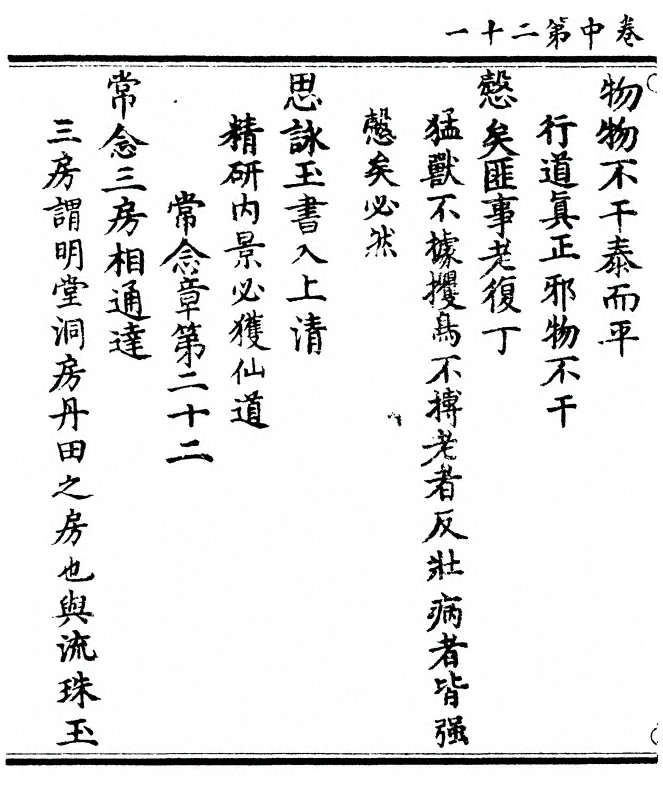 卷中第二十一
物物不干泰而平
行道眞正邪物不干
慤矣匪事老復丁
猛獸不據攫鳥不搏老者反壯病者皆强
慤矣必然
思詠玉書入上清
精研内景必獲仙道
常念章第二十二
常念三房相通達
三房謂明堂洞房丹田之房也與流珠玉